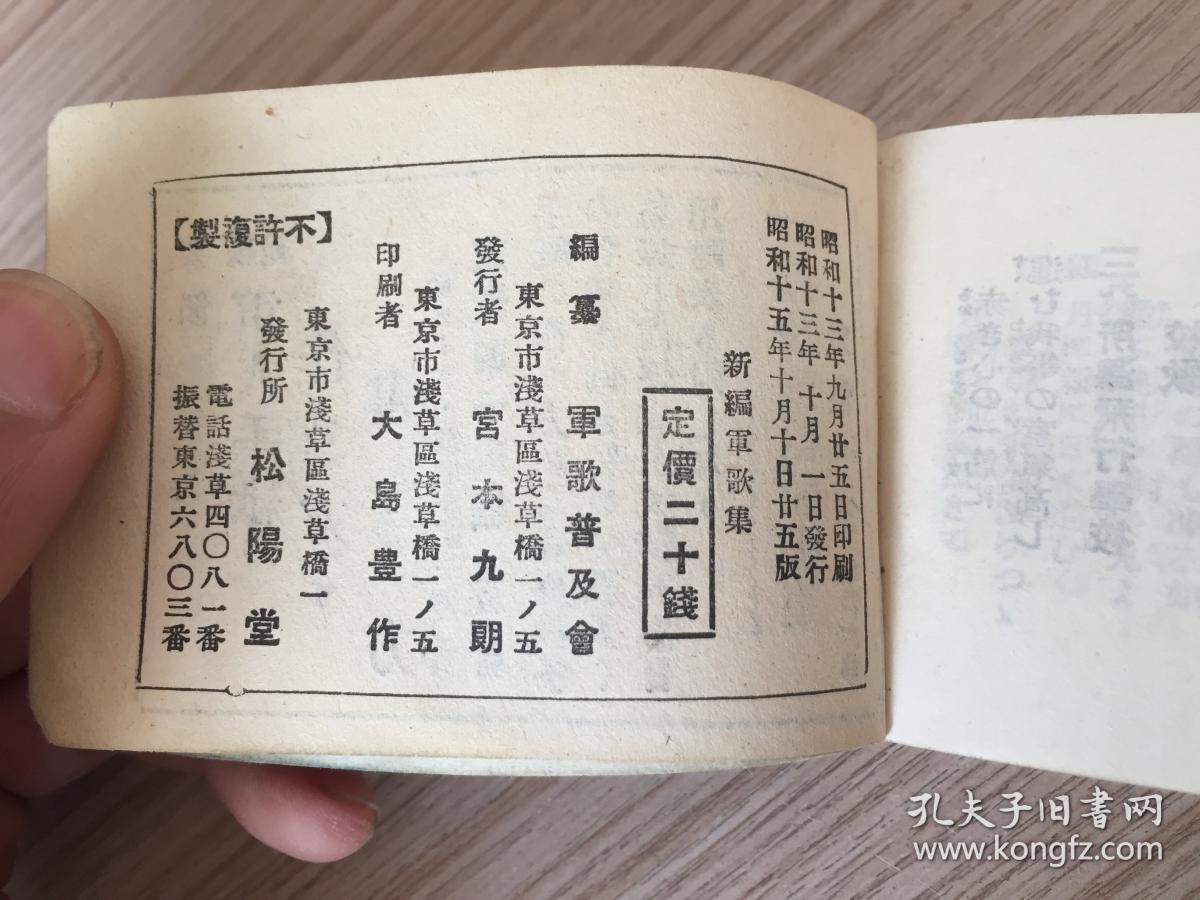 昭和十三年九月廿五日印刷
昭和十三年十月一日發行
昭和十五年十月十日廿五版
新編軍歌集
定價二十錢
編纂 軍歌普及會
東京市淺草區淺草橋一ノ五
發行者 宮本九朗
東京市淺草區淺草橋一ノ五
印刷者 大島豊作
東京市淺草區淺草橋一
發行所 松陽堂
電話淺草四〇八一番
振替東京六八〇三番
【不許複製】
孔夫子旧书网
www.kongfz.com